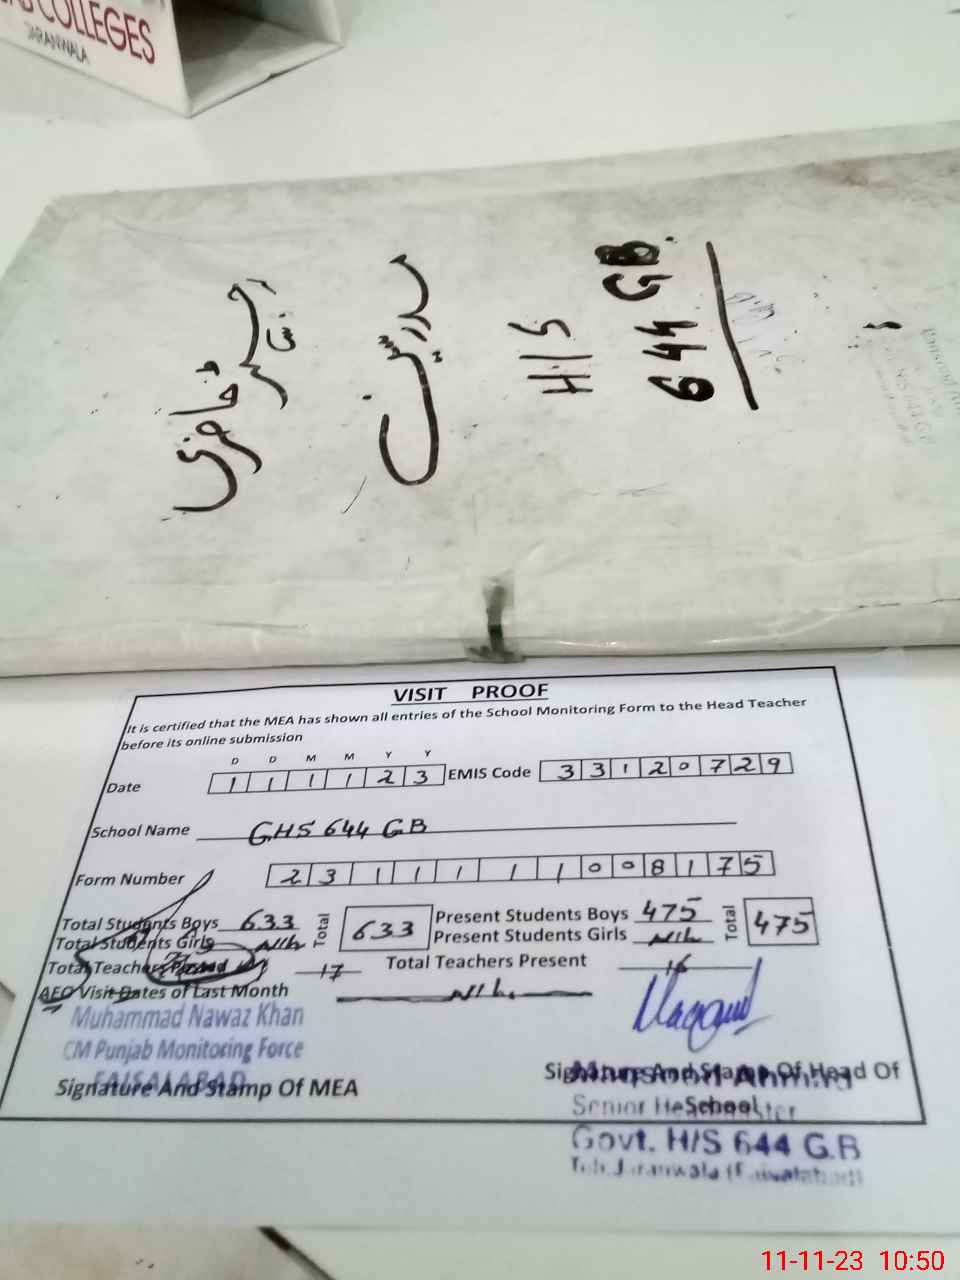 COLLEGES
JARANWALA
رجسٹر حاضری
مدرسین
H/S
644 GB.
VISIT PROOF
It is certified that the MEA has shown all entries of the School Monitoring Form to the Head Teacher
before its online submission
D D M M Y Y
Date 1 1 1 1 2 3 EMIS Code 3 3 1 2 0 7 2 9
School Name GHS 644 GB
Form Number 2 3 1 1 1 1 1 0 0 8 1 7 5
Total Students Boys 633 Total 633 Present Students Boys 475 Total 475
Total Students Girls Nil Present Students Girls Nil
Total Teachers 17 Total Teachers Present 16
AEO Visit Dates of Last Month Nil
Muhammad Nawaz Khan
CM Punjab Monitoring Force
FAISALABAD
Signature And Stamp Of MEA
Signature And Stamp Of Head Of
School
Maqsood Ahmad
Senior Headmaster
Govt. H/S 644 G.B
Teh. Jaranwala (Faisalabad)
11-11-23 10:50